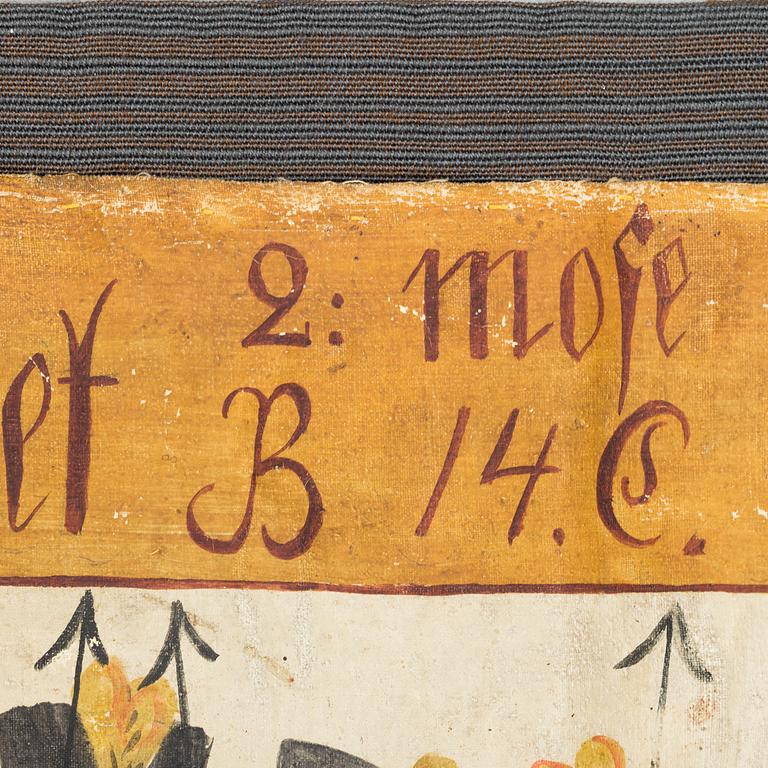 et
2: mose
B 14. C.